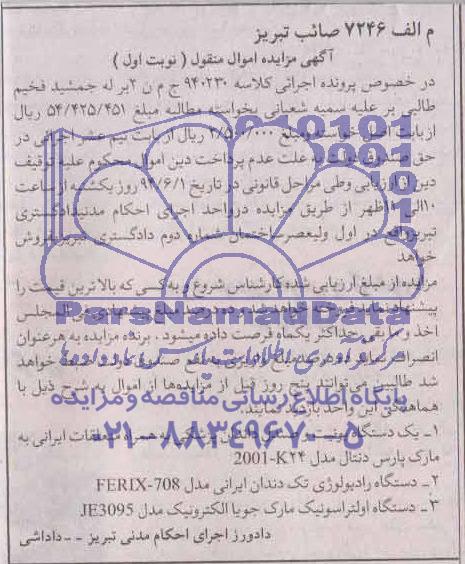 م الف ۷۲۴۶ صائب تبریز
آگهی مزایده اموال منقول ( نوبت اول )
در خصوص پرونده اجرائی کلاسه ۹۴۰۲۳۰ ج م ن ۲بر له جمشید فخیم
طالبی بر علیه سمیه شعبانی بخواسته مطالبه مبلغ ۵۴/۴۲۵/۴۵۱ ریال
از بابت اصل خواسته و مبلغ ریال از بابت نیم عشر اجرائی در
حق صندوق دولت به علت عدم پرداخت دین اموال محکوم علیه توقیف
دین از ارزیابی وطی مراحل قانونی در تاریخ ۹۴/۶/۱ روز یکشنبه از ساعت
۱۰الی ظهر از طریق مزایده درواحد اجرای احکام مدنیدادگستری
تبریزواقع در اول ولیعصرساختمان شماره دوم دادگستری تبریزبفروش
خواهد
مزایده از مبلغ ارزیابی شده کارشناس شروع و به کسی که بالاترین قیمت را
پیشنهاد نماید فروخته خواهد شد ده درصد مبلغ پیشنهادی فی المجلس
اخذ و مابقی حداکثر یکماه فرصت داده میشود . برنده مزایده به هر عنوان
انصراف نماید ده درصد مبلغ واریزی به نفع صندوق دولت ضبط خواهد
شد طالبین می‌توانند پنج روز قبل از مزایده‌ها از اموال به شرح ذیل با
هماهنگی این واحد بازدید نمایند.
۱ـ یک دستگاه یونیت و صندلی دندان پزشکی به همراه متعلقات ایرانی به
مارک پارس دنتال مدل 2001-K۲۴
۲ـ دستگاه رادیولوژی تک دندان ایرانی مدل FERIX-708
۳ـ دستگاه اولتراسونیک مارک جویا الکترونیک مدل JE3095
دادورز اجرای احکام مدنی تبریز - -داداشی
ParsNamadData
مرکز فرآوری اطلاعات پارس نماد داده‌ها
پایگاه اطلاع رسانی مناقصه و مزایده
۰۲۱-۸۸۳۴۹۶۷۰-۵